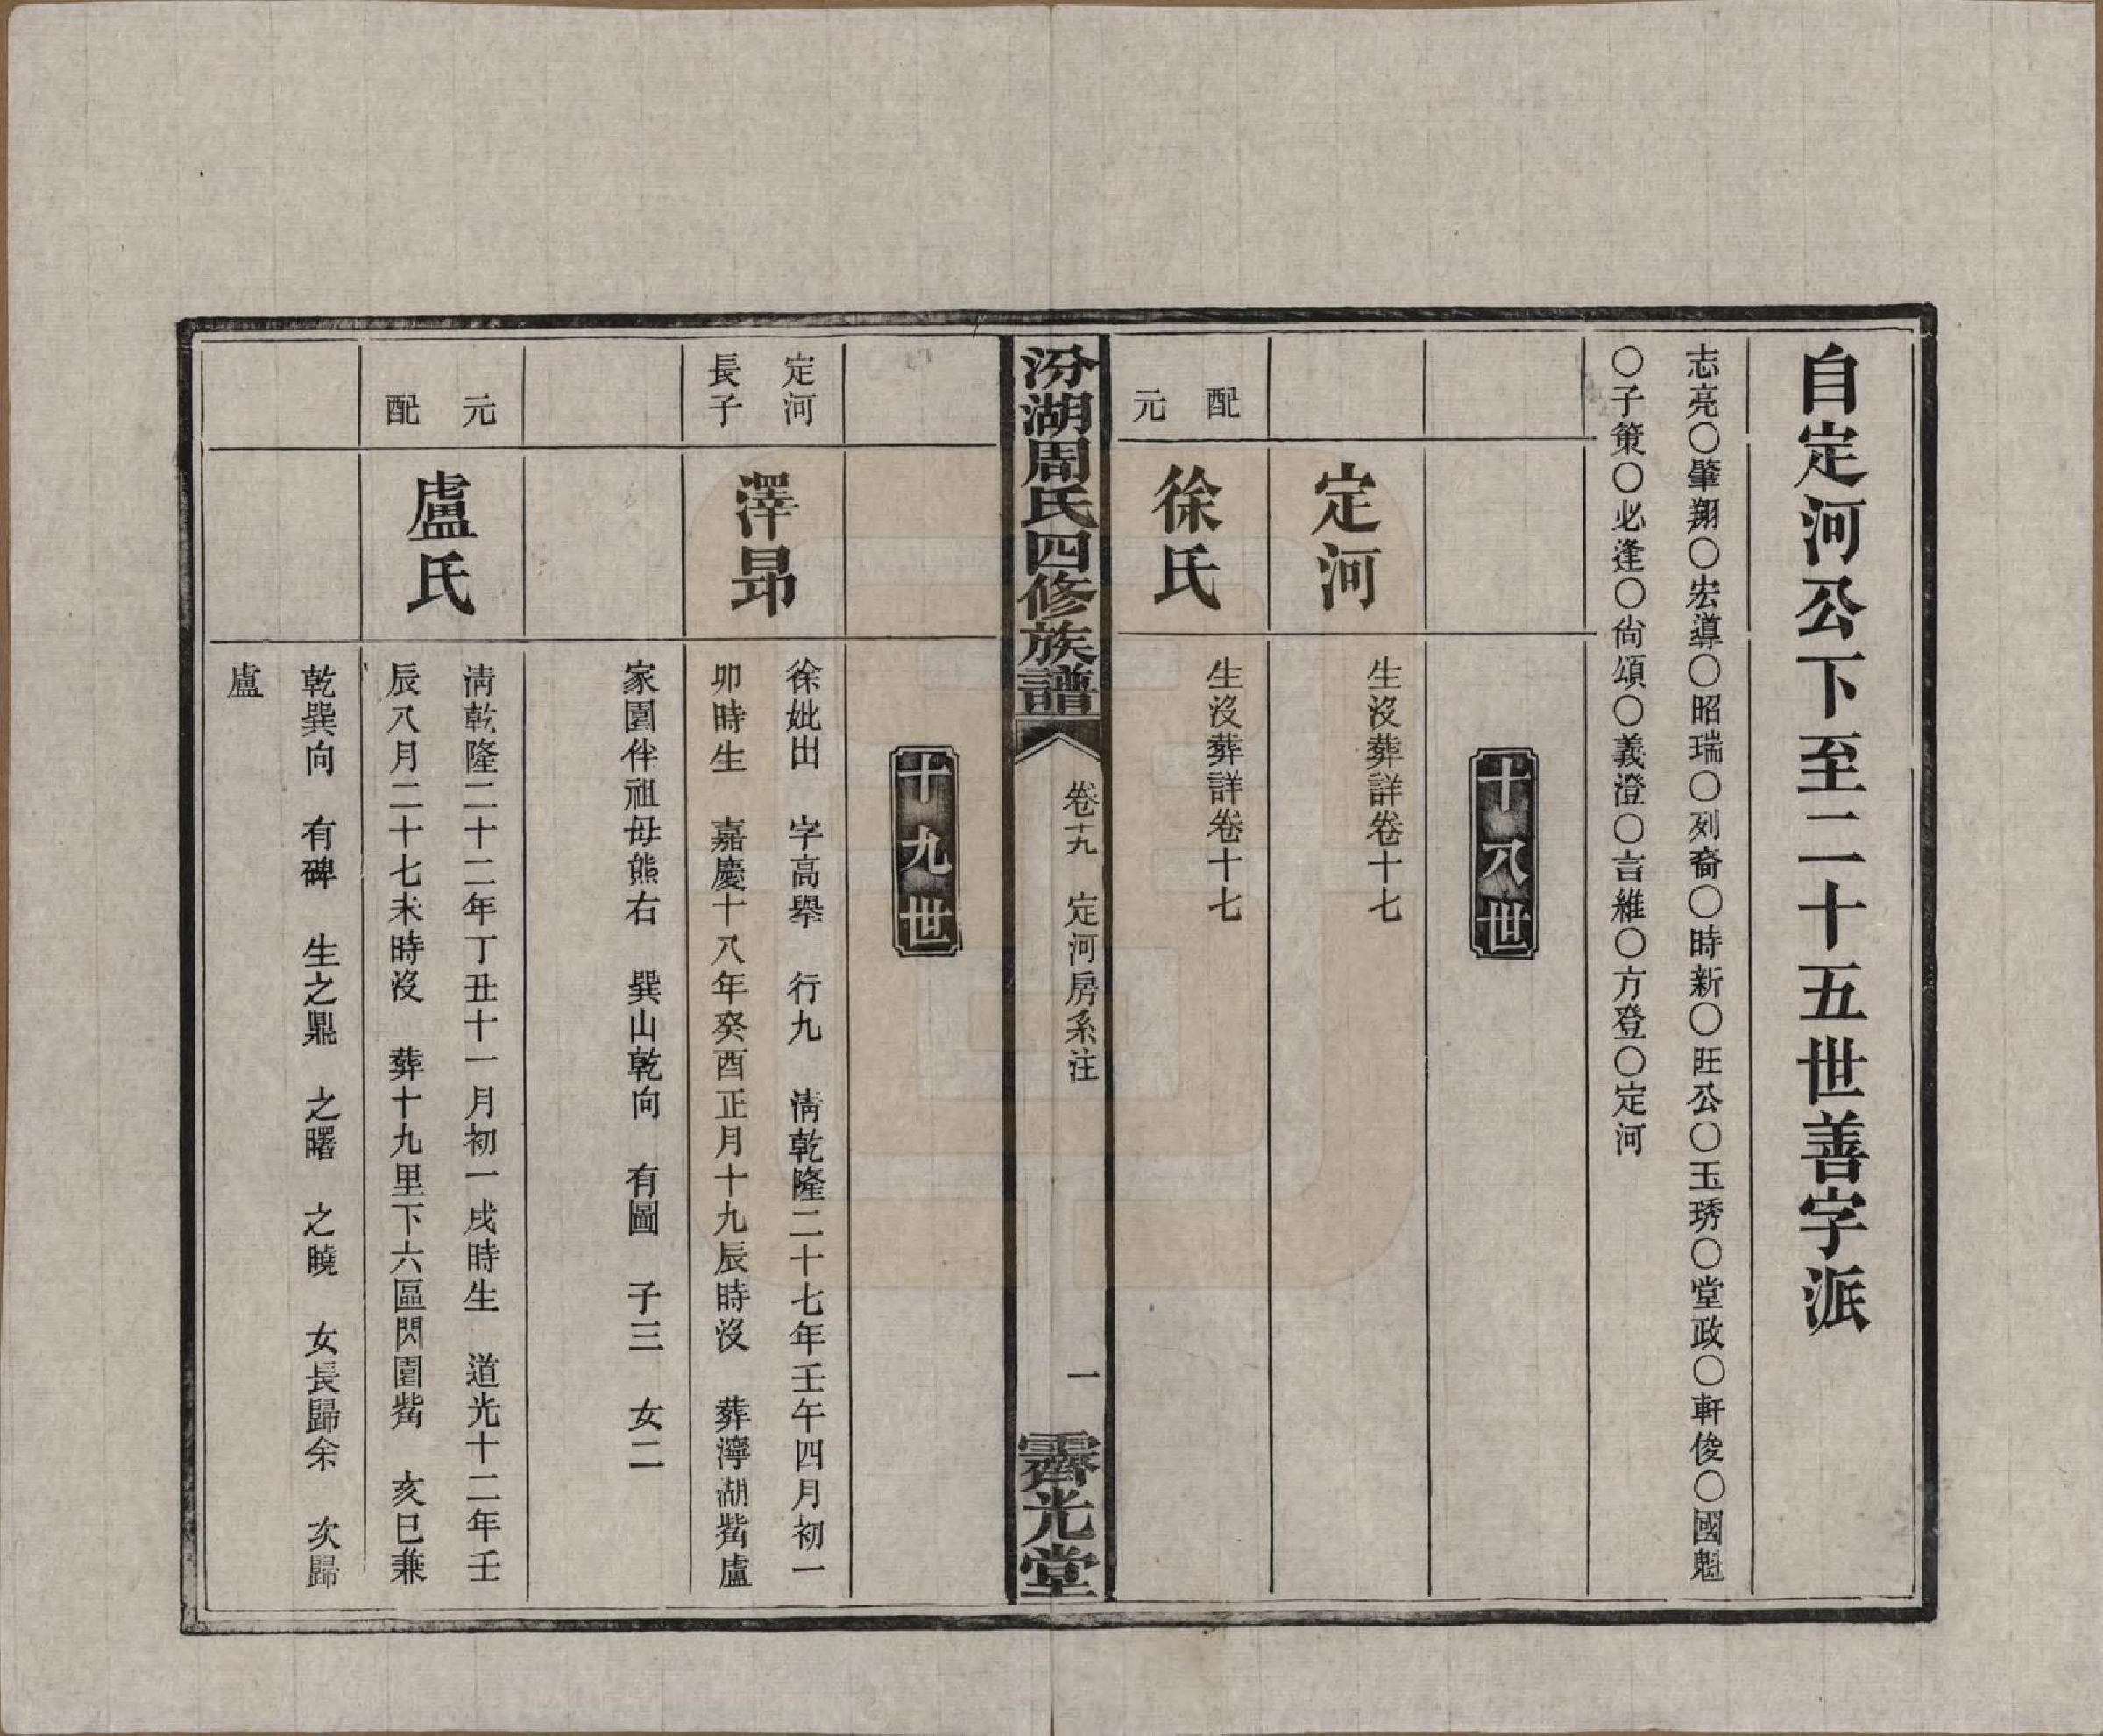 自定河公下至二十五世善字派
志亮〇肇翔〇宏導〇昭瑞〇列裔〇時新〇旺公〇玉琇〇堂政〇軒俊〇國魁
〇子策〇必逢〇尙頌〇義澄〇言維〇方登〇定河
十八世
定河
生沒葬詳卷十七
配元
徐氏
生沒葬詳卷十七
汾湖周氏四修族譜
卷十九 定河房系注
一
霽光堂
十九世
定河
長子
澤昻
徐妣出 字高舉 行九 淸乾隆二十七年壬午四月初一
卯時生 嘉慶十八年癸酉正月十九辰時沒 葬濘湖嘴盧
家園伴祖母熊右 巽山乾向 有圖 子三 女二
元配
盧氏
淸乾隆二十二年丁丑十一月初一戌時生 道光十二年壬
辰八月二十七未時沒 葬十九里下六區閃園嘴 亥巳兼
乾巽向 有碑 生之鼎 之曙 之曉 女長歸余 次歸
盧